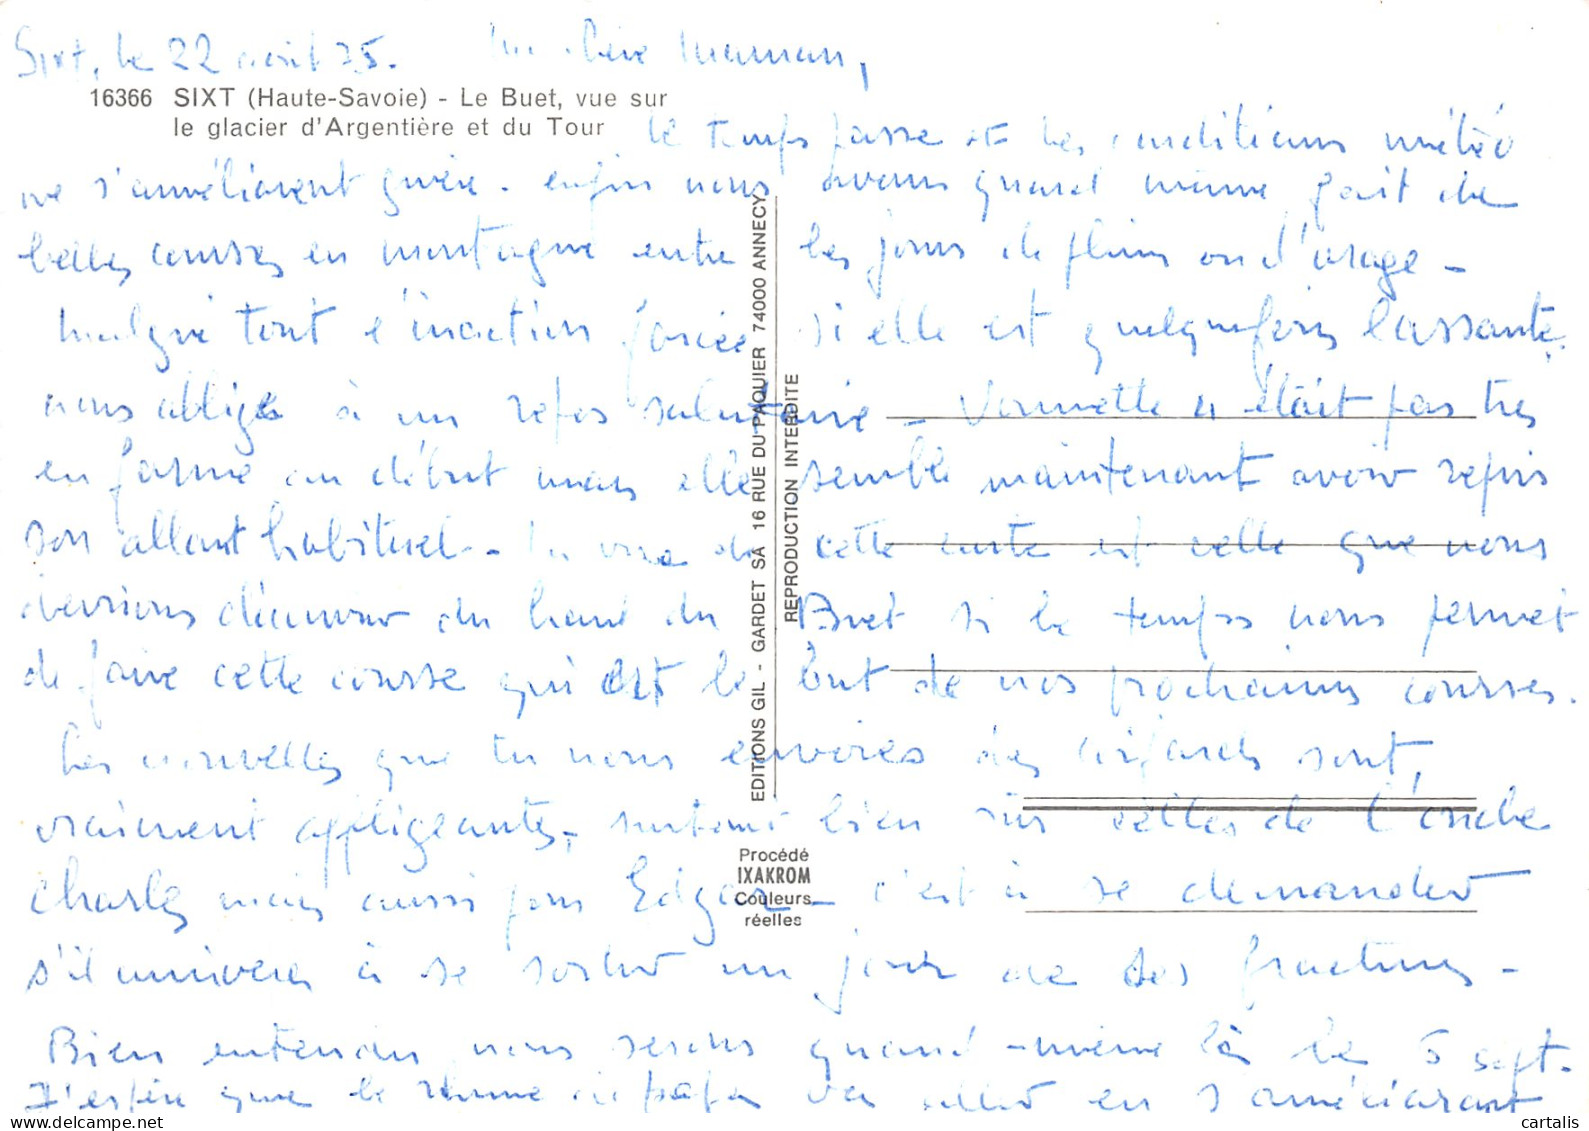 Sixt, le 22 août 75. Ma chère Maman,
16366 SIXT (Haute-Savoie) - Le Buet, vue sur
le glacier d'Argentière et du Tour
le temps passe et les conditions météo
ne s'améliorent guère. enfin nous avons quand même fait de
belles courses en montagne entre les jours de pluie ou d'orage -
Malgré tout l'inaction forcée si elle est quelquefois lassante
nous oblige à un repos salutaire - n'était pas très
en forme au début mais elle semble maintenant avoir repris
son allant habituel - la vue de cette carte est celle que nous
devrions découvrir du haut du Buet si le temps nous permet
de faire cette course qui est le but de nos prochaines courses.
Les nouvelles que tu nous envoies des sont,
vraiment affligeantes, surtout bien sûr celles de l'oncle
Charles mais aussi pour Edgar - c'est à se demander
s'il arrivera à se sortir un jour de ses fractures -
Bien entendu nous serons quand-même là le 5 sept.
J'espère que le rhume de papa va aller en s'améliorant
EDITIONS GIL - GARDET SA 16 RUE DU PAQUIER 74000 ANNECY
REPRODUCTION INTERDITE
Procédé
IXAKROM
Couleurs
réelles
cartalis.delcampe.net